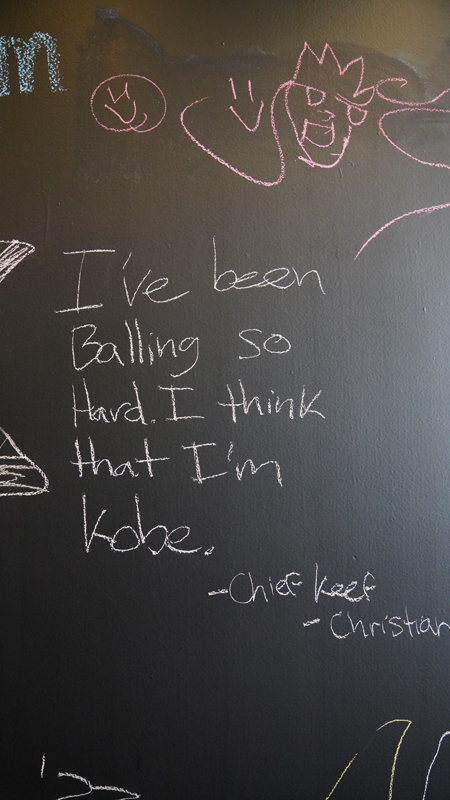 m
I've been
Balling so
Hard. I think
that I'm
Kobe.
-Chief Keef
- Christian